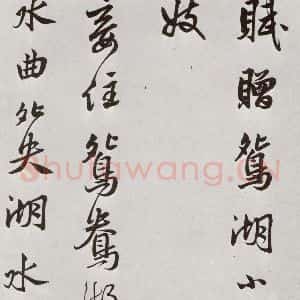 賦贈鴛湖小
妓
妾住鴛鴦湖
水曲夗央湖水
Shufawang.CN